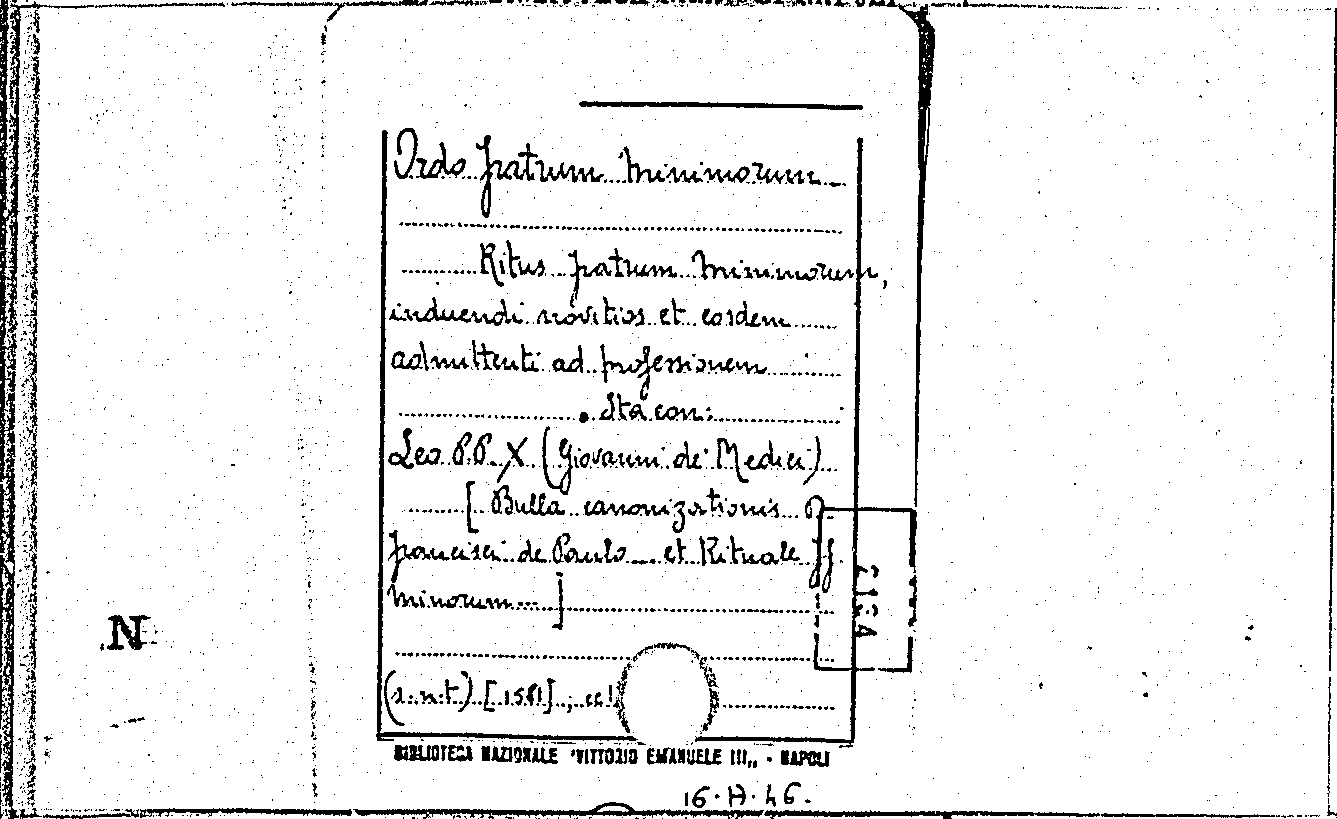 Ordo fratrum Minimorum
Ritus fratrum Minimorum,
induendi novitios et eosdem
admittenti ad professionem
Sta con:
Leo P.P. X (Giovanni de' Medici)
[Bulla canonizationis
francisci de Paulo... et Rituale ff
Minorum...]
(s.n.t) [1581]; cc
BIBLIOTECA NAZIONALE "VITTORIO EMANUELE III„ - NAPOLI
16.H.46.
N